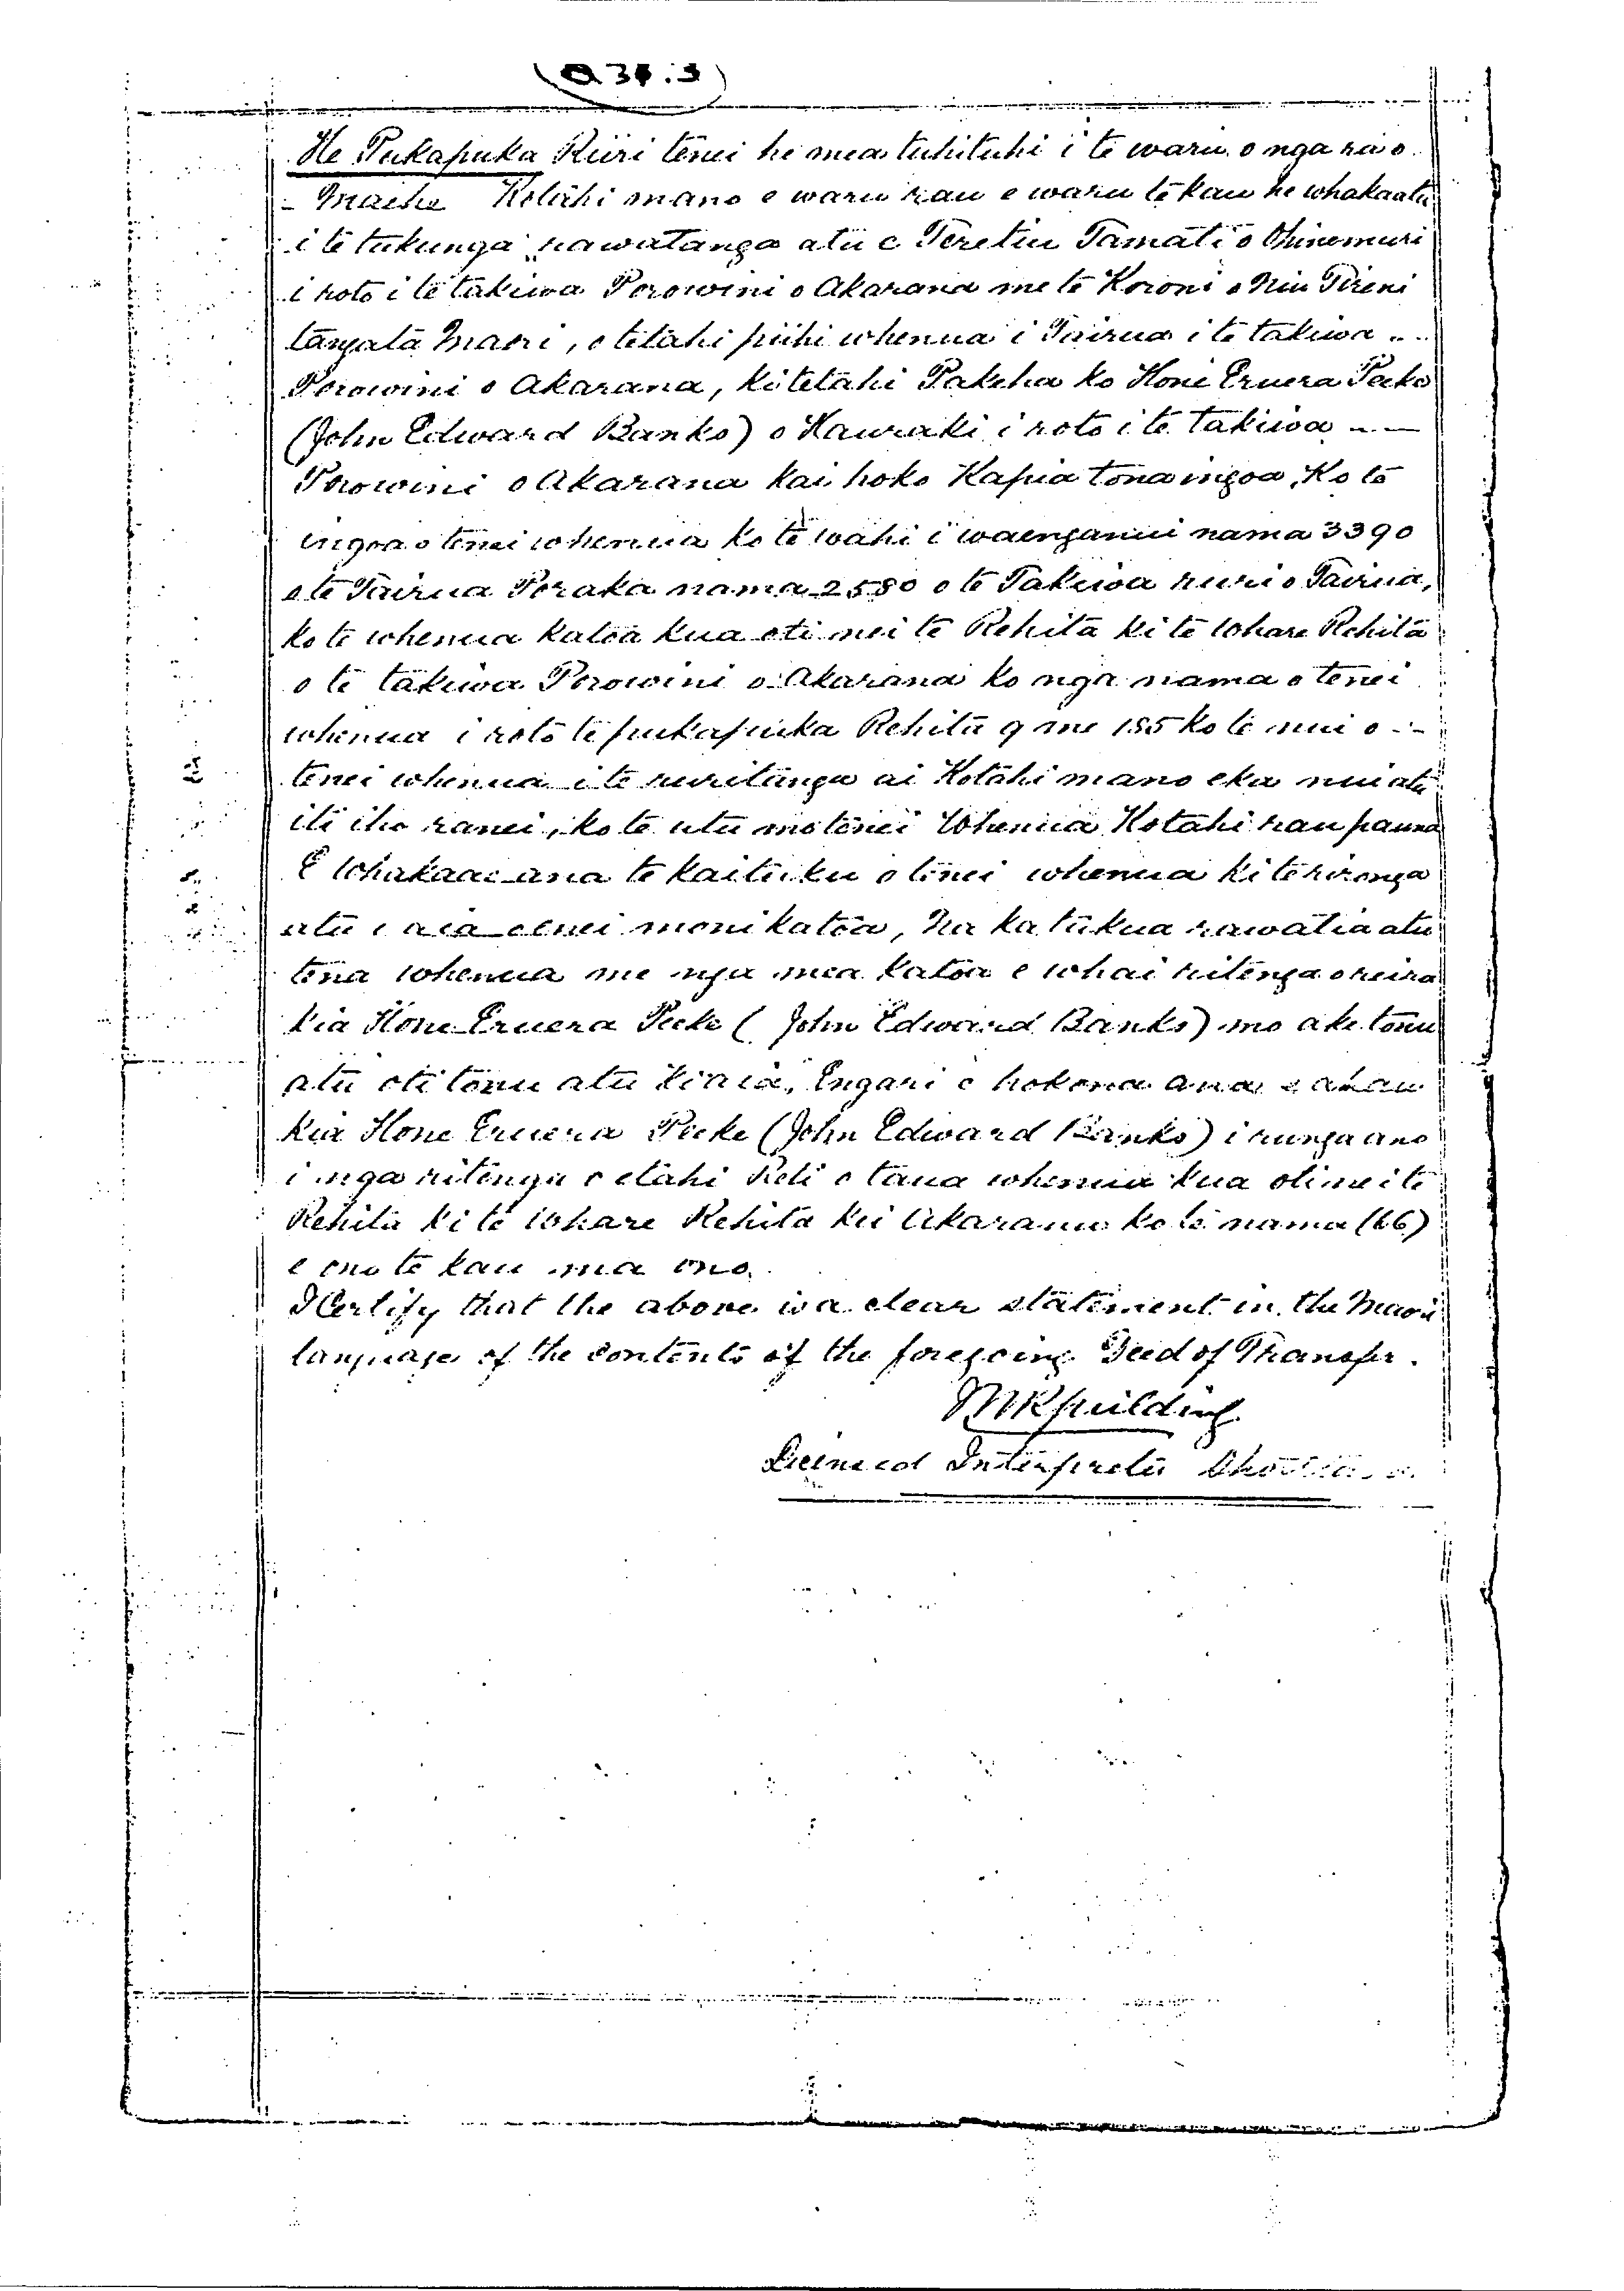 He Pukapuka Riiri tenei he mea tuhituhi i te waru o nga ra o
Maehe Kotahi mano e waru rau e waru te kau he whakaatu
i te tukunga rawatanga atu e Teretiu Tamati o Ohinemuri
i roto i te takiwa Porowini o Akarana me te Koroni o Niu Tireni
tangata Maori, o tetahi pihi whenua i Tairua i te takiwa
Porowini o Akarana, ki tetahi Pakeha ko Hone Eruera Peeke
(John Edward Banks) o Hauraki i roto i te takiwa
Porowini o Akarana kai hoko Kapia tona ingoa, Ko te
ingoa o tenei whenua ko te wahi i waenganui nama 3390
o te Tairua Poraka nama 2580 o te Takiwa ruri o Tairua,
ko te whenua katoa kua oti nei te Rehita ki te Whare Rehita
o te takiwa Porowini o Akarana ko nga nama o tenei
whenua i roto te pukapuka Rehita 9 me 155 ko te nui o
tenei whenua i te ruritanga ai Kotahi mano eka nui atu
iti iho ranei, ko te utu mo tenei Whenua Kotahi rau pauna
E Whakaae ana te kaituku o tenei whenua ki te rironga
atu i a ia enei moni katoa, Na ka tukua rawatia atu
tena whenua me nga mea katoa e whai ritenga o reira
kia Hone Eruera Peeke (John Edward Banks) mo ake tonu
atu oti tonu atu ki a ia, Engari e hokona ana e ahau
kia Hone Eruera Peeke (John Edward Banks) i runga ano
i nga ritenga o etahi Reti o taua whenua kua oti nei te
Rehita ki te Whare Rehita kei Akarana ko te nama (66)
e ono te kau ma ono.
I Certify that the above is a clear statement in the Maori
language of the contents of the foregoing Deed of Transfer.
Licensed Interpreter